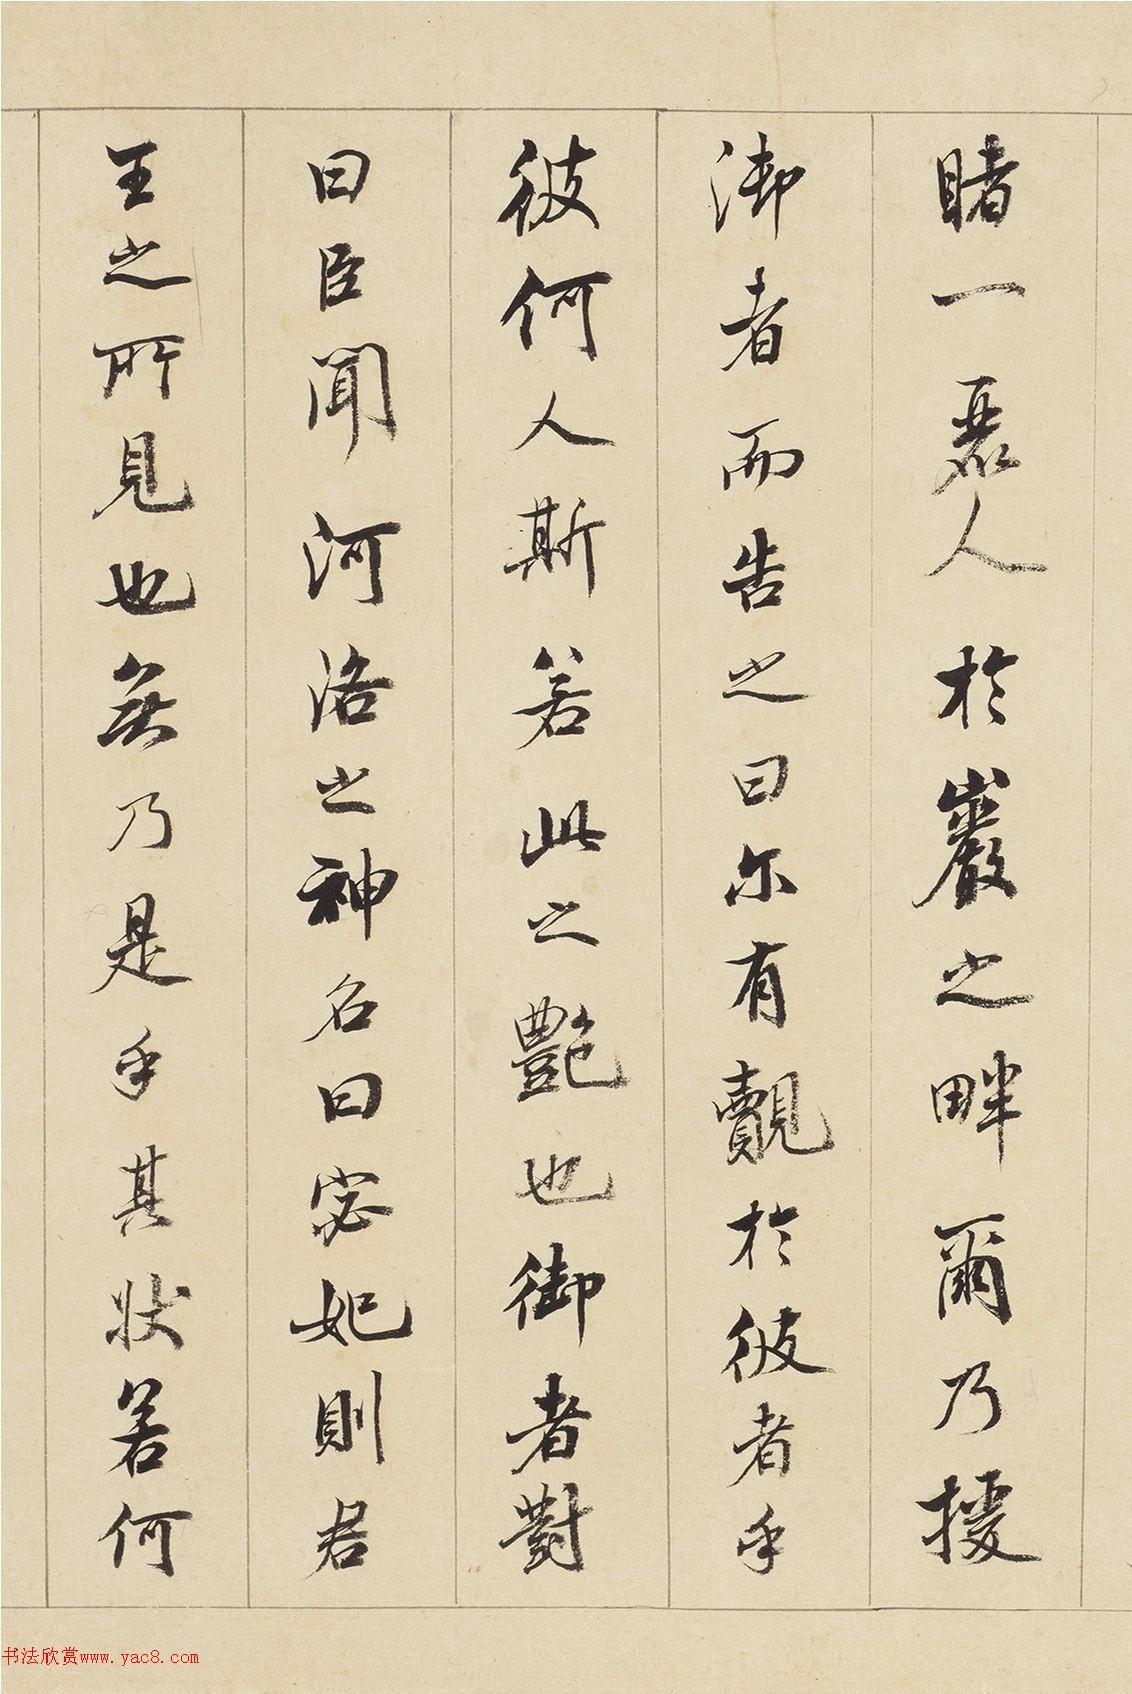 睹一麗人於巖之畔爾乃援
御者而告之曰尔有覿於彼者乎
彼何人斯若此之艷也御者對
曰臣聞河洛之神名曰宓妃則君
王之所見也無乃是乎其狀若何
书法欣赏www.yac8.com